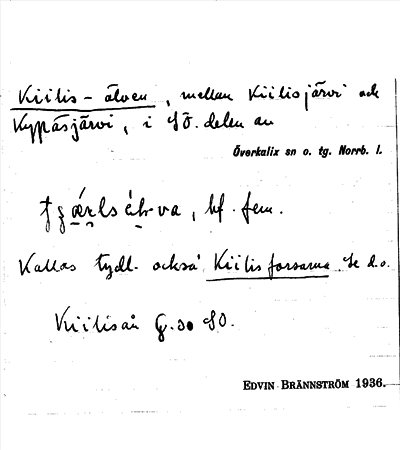 Kiilis-älven, mellan Kiilisjärvi och
Kypäsjärvi, i SÖ. delen av
Överkalix sn o. tg. Norrb. l.
bf. fem.
Kallas tydl. också Kiilisforsarna. Se d.o.
Kiilisån G.30 SO.
EDVIN BRÄNNSTRÖM 1936.